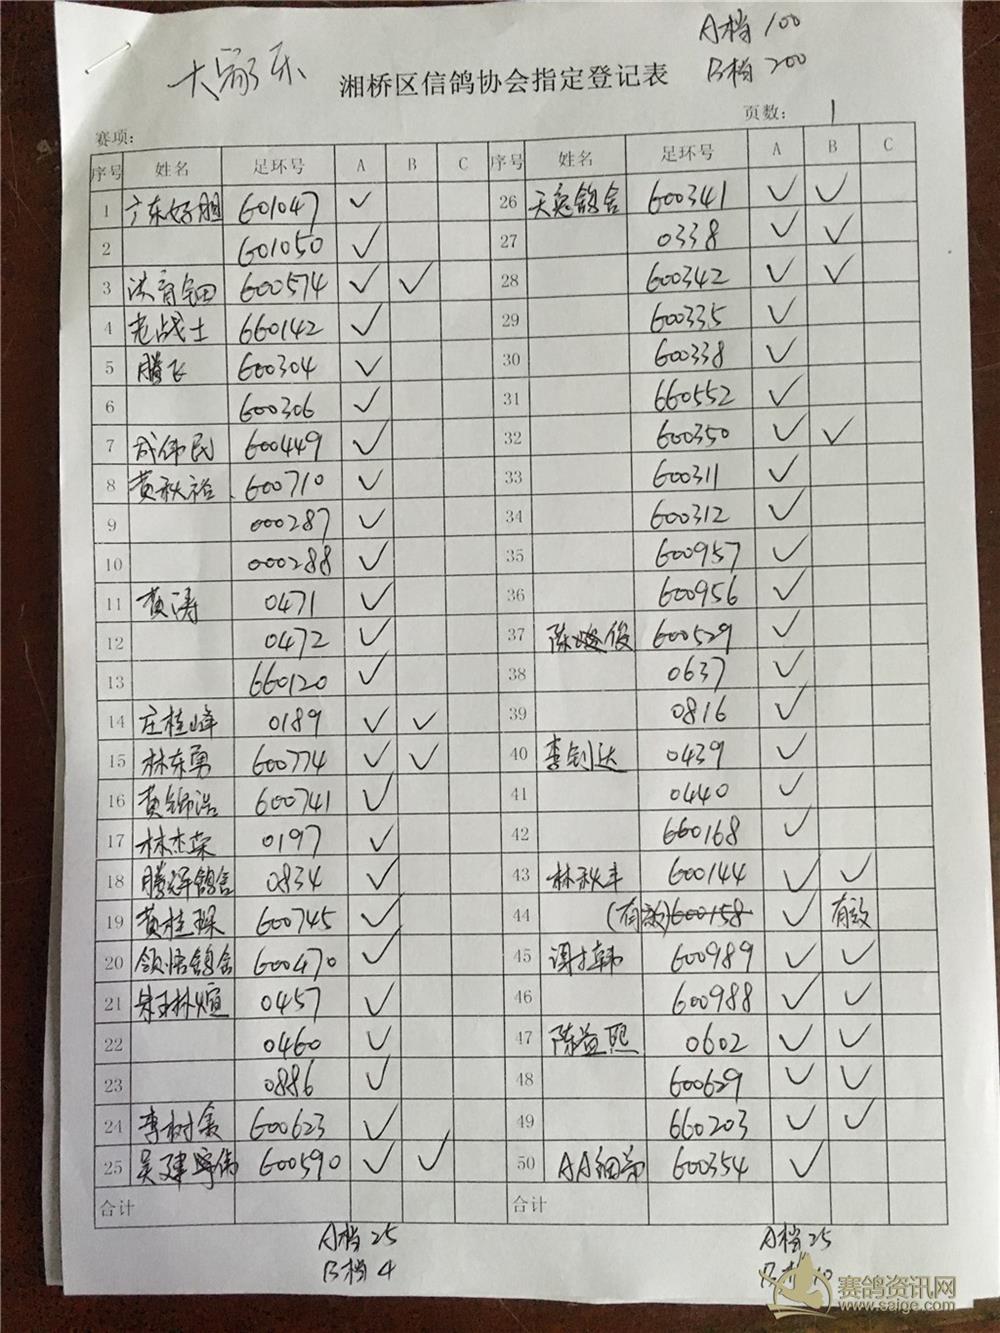 A档 100
大家乐
湘桥区信鸽协会指定登记表
B档 200
页数: 1
赛项:
序号 姓名 足环号 A B C 序号 姓名 足环号 A B C
1 广东好胆 601047 ✓ 26 天冠鸽舍 600341 ✓ ✓
2 601050 ✓ 27 0338 ✓ ✓
3 洪育钿 600574 ✓ ✓ 28 600342 ✓ ✓
4 老战士 660142 ✓ 29 600335 ✓
5 腾飞 600304 ✓ 30 600338 ✓
6 600306 ✓ 31 660552 ✓
7 成伟民 600449 ✓ 32 600350 ✓ ✓
8 黄秋裕 600710 ✓ 33 600311 ✓
9 000287 ✓ 34 600312 ✓
10 000288 ✓ 35 600957 ✓
11 黄涛 0471 ✓ 36 600956 ✓
12 0472 ✓ 37 陈俊 600529 ✓
13 660120 ✓ 38 0637 ✓
14 庄桂峰 0189 ✓ ✓ 39 0816 ✓
15 林东勇 600774 ✓ ✓ 40 李钊达 0439 ✓
16 黄浩 600741 ✓ 41 0440 ✓
17 林杰荣 0197 ✓ 42 660168 ✓
18 腾辉鸽舍 0834 ✓ 43 林秋丰 600144 ✓ ✓
19 黄桂琛 600745 ✓ 44 (有效)600158 ✓ 有效
20 领悟鸽舍 600470 ✓ 45 谢韩 600989 ✓ ✓
21 林煊 0457 ✓ 46 600988 ✓ ✓
22 0460 ✓ 47 陈益熙 0602 ✓ ✓
23 0886 ✓ 48 600629 ✓ ✓
24 李树 600623 ✓ 49 660203 ✓ ✓
25 吴建伟 600590 ✓ ✓ 50 AA细弟 600354 ✓
合计 合计
A档 25 A档 25
B档 4 B档 10
赛鸽资讯网
www.saige.com